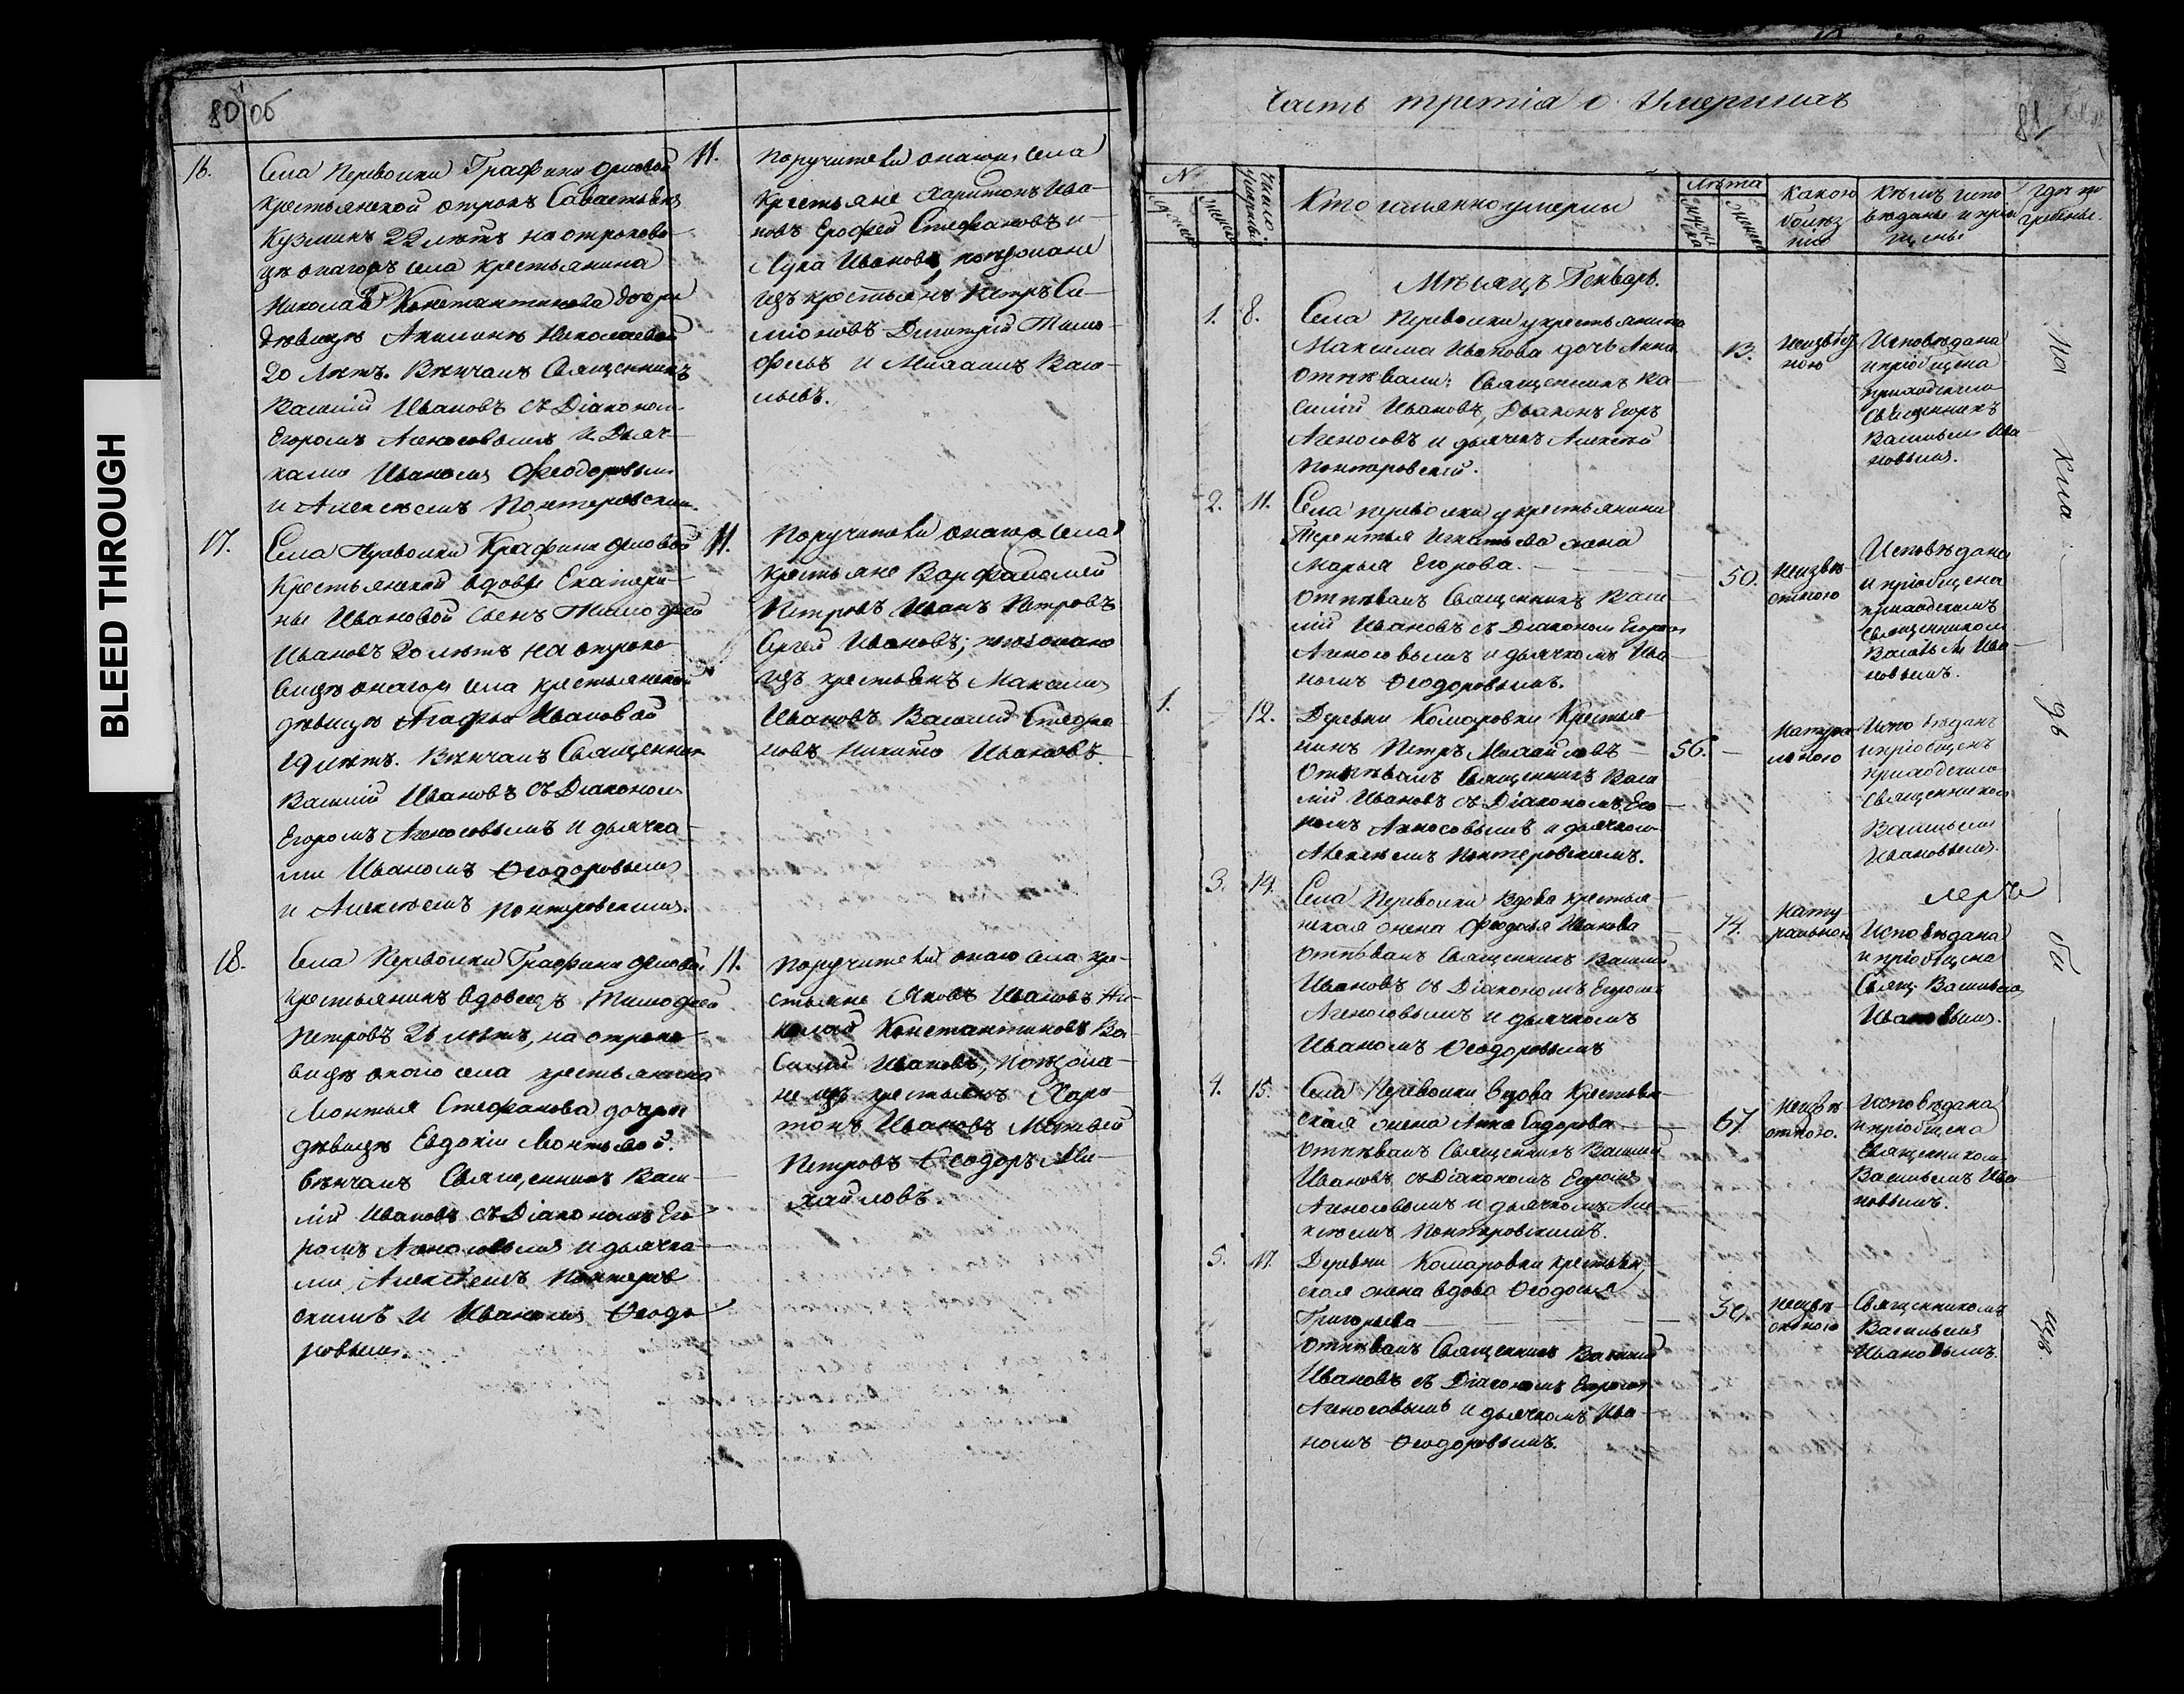 BLEED THROUGH
80 об
16.
Села Переволки Графини Орловой
крестьянской отрокъ Савастьянъ
Кузминъ 22 лѣтъ на отрокови-
цѣ онагожъ села крестьянина
Николая Константинова дочери
дѣвицѣ Акилинѣ Николаевой
20 лѣтъ. Вѣнчалъ Священникъ
Василій Ивановъ съ Діакономъ
Егоромъ Агносовымъ и Дьяч-
ками Иваномъ Феодоровымъ
и Алексѣемъ Понтеровскимъ.
11.
Поручители онагожъ села
Крестьяне Харитонъ Ива-
новъ Ерофей Стефановъ и
Лука Ивановъ, поѣзжане
изъ крестьянъ Петръ Си-
міоновъ Димитрій Тимо-
феевъ и Михаилъ Васи-
льевъ.
17.
Села Переволки Графини Орловой
Крестьянской вдовы Екатери-
ны Ивановой сынъ Тимофей
Ивановъ 20 лѣтъ на отроко-
вицѣ онагожъ села крестьянской
дѣвицѣ Агафьи Ивановой
19 лѣтъ. Вѣнчалъ Священникъ
Василій Ивановъ съ Діакономъ
Егоромъ Агносовымъ и дьячка-
ми Иваномъ Ѳеодоровымъ
и Алексѣемъ Понтеровскимъ.
11.
Поручители онаго села
крестьяне Варфаламей
Петровъ Иванъ Петровъ
Сергей Ивановъ; поезжано
изъ крестьянъ Максимъ
Ивановъ Василий Стефа-
новъ Никита Ивановъ.
18.
Села Переволки Графини Орловой
крестьянинъ вдовецъ Тимофей
Петровъ 26 лѣтъ, на отроко-
вицѣ онаго села крестьянина
Леонтья Стефанова дочери
дѣвицѣ Евдокіи Леонтьевой.
вѣнчалъ Священникъ Васи-
лій Ивановъ съ Діакономъ Его-
ромъ Агносовымъ и дьячка-
ми Алексѣемъ Понтеров
скимъ и Иваномъ Ѳеодо
ровымъ.
11.
Поручители онаго села кре-
стьяне Яковъ Ивановъ Ни-
колай Константиновъ Ва-
силий Ивановъ, поѣзжа-
не изъ крестьянъ Хари-
тонъ Ивановъ Матвей
Петровъ Ѳеодоръ Ми-
хайловъ.
Часть третія о Умершихъ
81
№
Число умершихъ
Кто имянно умерли
Лѣта
Какою болѣз нію
Кѣмъ испо вѣданы и прі щены
Гдѣ по гребены.
Мѣсяцъ Генварь.
1. 8.
Села Переволки у крестьянина
Максима Иванова дочь Анна
отпѣвали: Священникъ Ва-
силій Ивановъ, Дьаконъ Егоръ
Агносовъ и дьячекъ Алексей
Понтеровскій.
13.
Неизвѣст
ною
Исповѣдана
и пріобщена
приходскимъ
Священникомъ
Васильемъ Ива-
новымъ.
2. 11.
Села переволки у крестьянина
Терентья Игнатьева жена
Марья Егорова.
отпѣвалъ Священникъ Васи-
лій Ивановъ съ Діакономъ Егоромъ
Агносовымъ и дьячкомъ Ива-
номъ Ѳеодоровымъ.
50.
Неизвѣ-
стною
Исповѣдана
и пріобщена
приходскимъ
Священникомъ
Васильемъ Ива-
новымъ.
1. 12.
Деревни Комаровки Крестья-
нинъ Петръ Михайловъ
Отпѣвалъ Священникъ Васи
лій Ивановъ съ Діакономъ Его-
ромъ Агносовымъ и дьячкомъ
Алексѣемъ Понтеровскимъ.
56.
Натура
льною
Исповѣданъ
и пріобщенъ
приходскимъ
Священникомъ
Васильемъ
Ивановымъ.
3. 14.
Села Переволки Вдова крестья-
нская жена Феодосья Иванова
отпѣвалъ Священникъ Василій
Ивановъ съ Діакономъ Егоромъ
Агносовымъ и дьячкомъ
Иваномъ Ѳеодоровымъ
74.
Нату
ральною
Исповѣдана
и пріобщена
Свящ. Васильемъ
Ивановымъ.
4. 15.
Села Переволки вдова Крестьян-
ская жена Анна Сидорова
отпѣвалъ Священникъ Василій
Ивановъ съ Діакономъ Егоромъ
Агносовымъ и дьячкомъ Але
ксѣемъ Понтеровскимъ.
67
Неизвѣ
стною.
Исповѣдана
и пріобщена
Священникомъ
Васильемъ Ива
новымъ.
5. 17.
Деревни Комаровки крестьян
ская жена вдова Ѳеодосья
Григорьева
отпѣвалъ Священникъ Василій
Ивановъ съ Діакономъ Егоромъ
Агносовымъ и дьячкомъ Ива-
номъ Ѳеодоровымъ.
59.
Неизвѣ-
стною
Священникомъ
Васильемъ
Ивановымъ.
На клад би щѣ